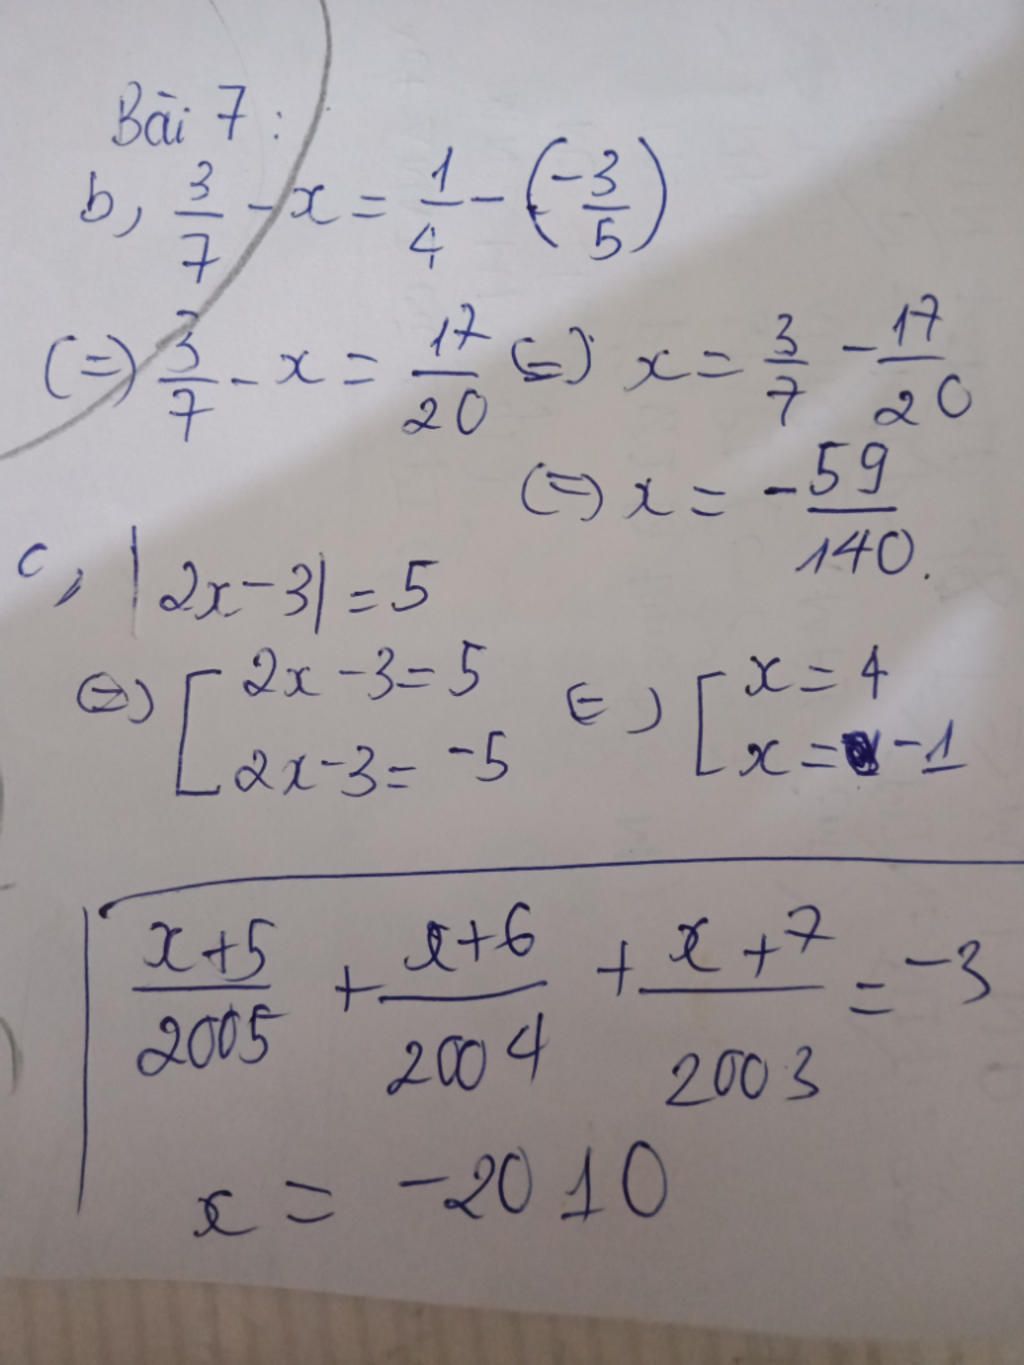 Bài 7:
b, 3/7 - x = 1/4 - (-3/5)
(=) 3/7 - x = 17/20 (=) x = 3/7 - 17/20
(=) x = -59/140.
c, |2x-3| = 5
(=) [ 2x-3 = 5 (=) [ x = 4
2x-3 = -5 x = -1
x+5/2005 + x+6/2004 + x+7/2003 = -3
x = -2010